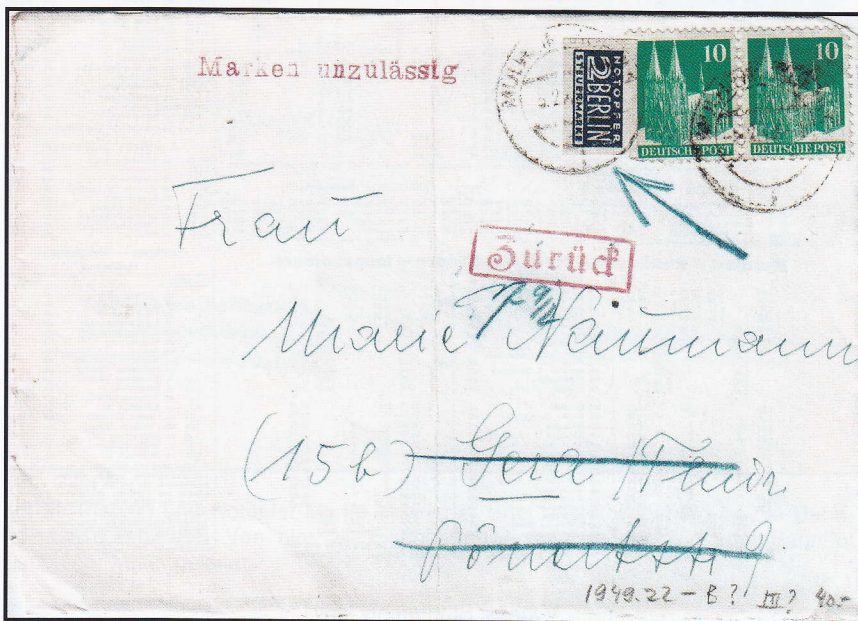 Marken unzulässig
NOTOPFER
2 BERLIN
STEUERMARKE
10
DEUTSCHE POST
10
DEUTSCHE POST
Frau
Zurück
Marie Naumann
(15b) Gera /Thür.
1949.22 - B? III? 40.-